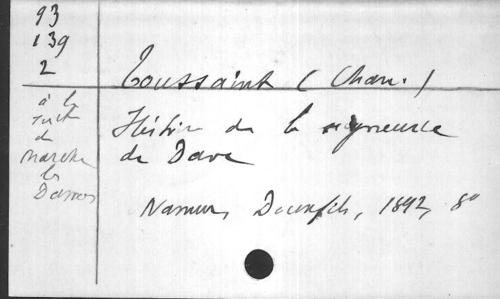 93
139
2
Toussaint (Chan.)
à la
suite
de
Marche
les
Dames
Histoire de la seigneurie
de Dave
Namur, Douxfils, 1892, 8°